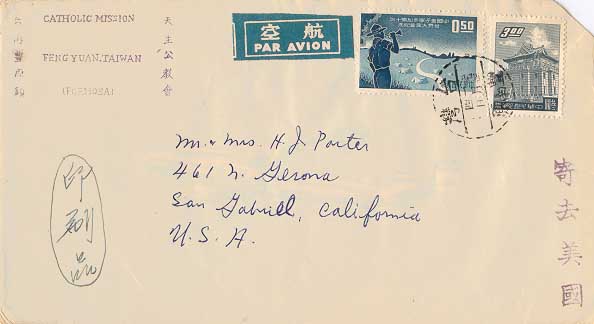 CATHOLIC MISSION
FENG YUAN, TAIWAN
(FORMOSA)
天主公教會
航空
PAR AVION
0.50
3.00
Mr. & Mrs. H. J. Porter
461 N. Gerona
San Gabriel, California
U.S.A.
印刷品
寄去美國